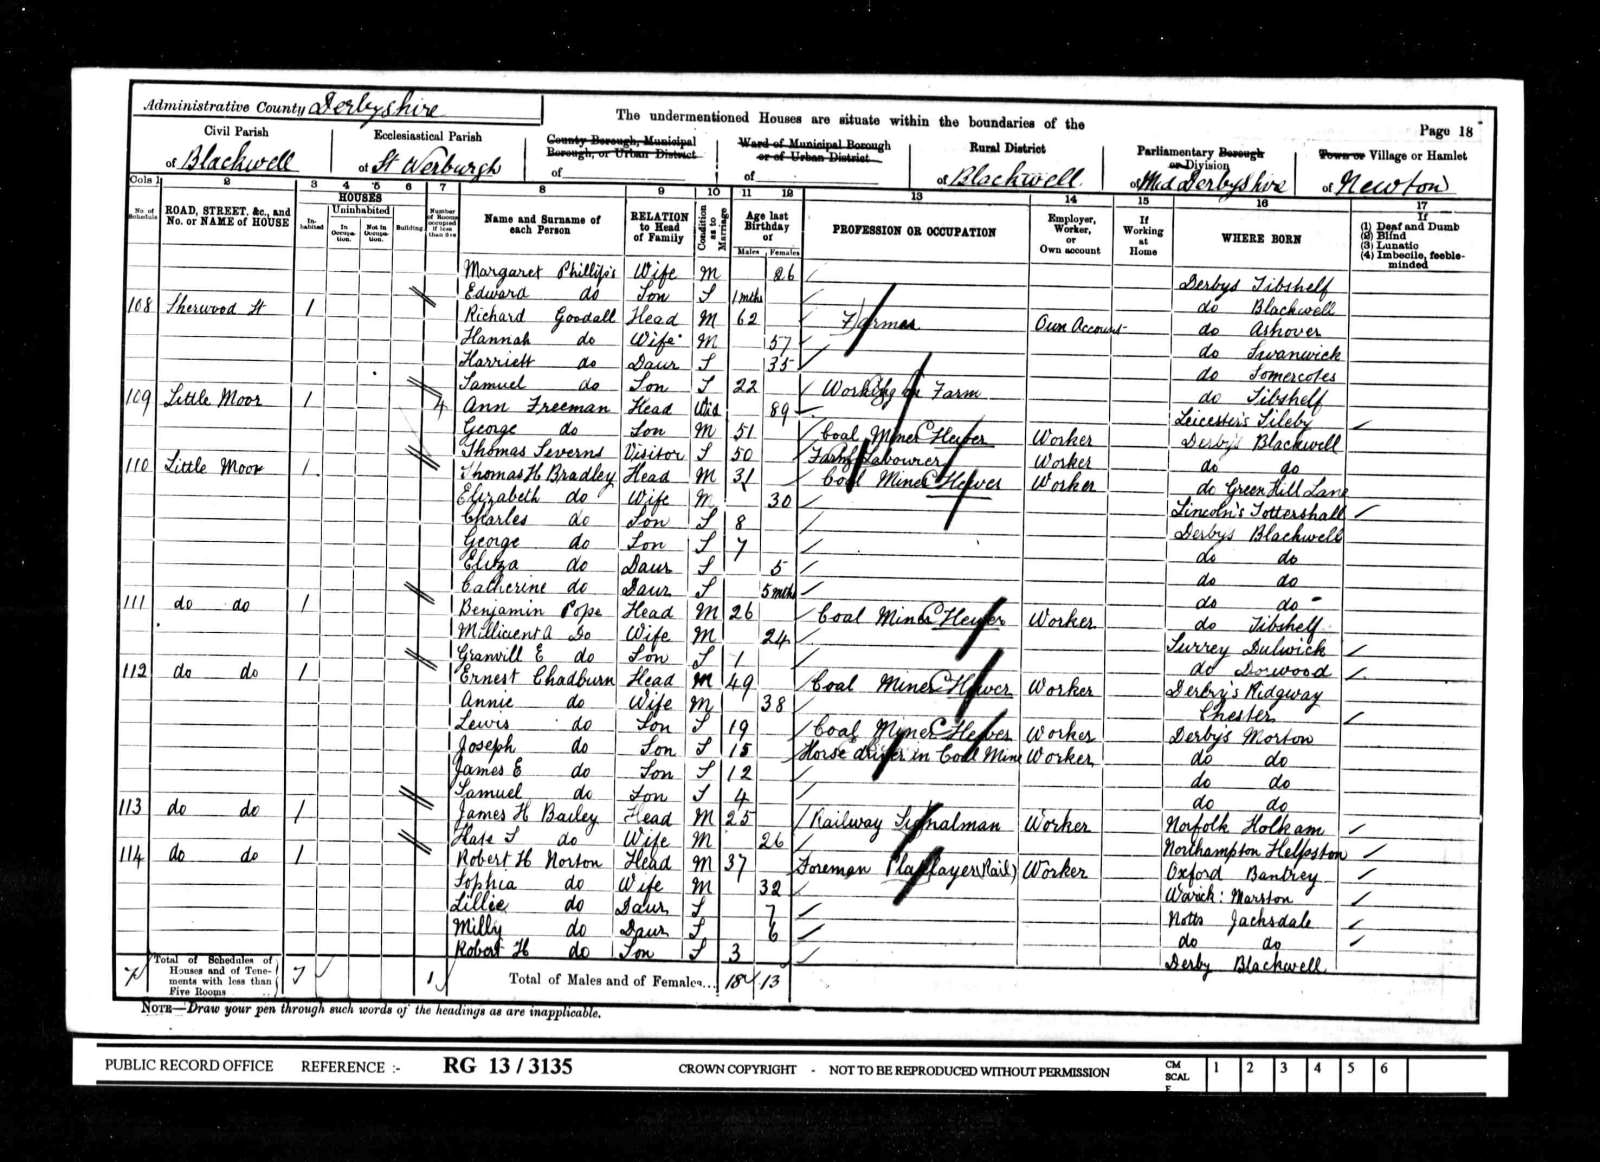 Administrative County Derbyshire
The undermentioned Houses are situate within the boundaries of the
Page 18
Civil Parish of Blackwell
Ecclesiastical Parish of St Werburgh
County Borough, Municipal Borough, or Urban District of
Ward of Municipal Borough or of Urban District of
Rural District of Blackwell
Parliamentary Borough or Division of Mid Derbyshire
Town or Village or Hamlet of Newton
Cols 1 2 3 4 5 6 7 8 9 10 11 12 13 14 15 16 17
No. of Schedule
ROAD, STREET, &c., and No. or NAME of HOUSE
HOUSES
Inhabited
Uninhabited
In Occupation.
Not in Occupation.
Building
Number of Rooms occupied if less than five
Name and Surname of each Person
RELATION to Head of Family
Condition as to Marriage
Age last Birthday of
Males Females
PROFESSION OR OCCUPATION
Employer, Worker, or Own account
If Working at Home
WHERE BORN
If (1) Deaf and Dumb (2) Blind (3) Lunatic (4) Imbecile, feeble-minded
Margaret Phillips Wife M 26 Derbys Tibshelf
Edward do Son S 1 mths do Blackwell
108 Sherwood St 1 Richard Goodall Head M 62 Farmer Own Account do Ashover
Hannah do Wife M 57 do Swanwick
Harriett do Daur S 35 do Somercotes
Samuel do Son S 22 Working on Farm do Tibshelf
109 Little Moor 1 4 Ann Freeman Head Wid 89 Leicesters Sileby
George do Son M 51 Coal Miner Hewer Worker Derbys Blackwell
Thomas Severns Visitor S 50 Farm Labourer Worker do do
110 Little Moor 1 Thomas H Bradley Head M 31 Coal Miner Hewer Worker do Green Hill Lane
Elizabeth do Wife M 30 Lincoln's Tottershall
Charles do Son S 8 Derbys Blackwell
George do Son S 7 do do
Eliza do Daur S 5 do do
Catherine do Daur S 5 mths do do
111 do do 1 Benjamin Pope Head M 26 Coal Miner Hewer Worker do Tibshelf
Millicent A Do Wife M 24 Surrey Dulwick
Granvill E do Son S 1 do Dorwood
112 do do 1 Ernest Chadburn Head M 49 Coal Miner Hewer Worker Derby's Ridgway
Annie do Wife M 38 Chester
Lewis do Son S 19 Coal Miner Hewer Worker Derbys Morton
Joseph do Son S 15 Horse driver in Coal Mine Worker do do
James E do Son S 12 do do
Samuel do Son S 4 do do
113 do do 1 James H Bailey Head M 25 Railway Signalman Worker Norfolk Holkam
Kate S do Wife M 26 Northampton Helpston
114 do do 1 Robert H Norton Head M 37 Foreman Platelayer (Rail) Worker Oxford Bantrey
Sophia do Wife M 32 Warick: Marston
Lillie do Daur S 7 Notts Jacksdale
Milly do Daur S 6 do do
Robert H do Son S 3 Derby Blackwell
7 Total of Schedules of Houses and of Tenements with less than Five Rooms 7 1 Total of Males and of Females... 18 13
NOTE—Draw your pen through such words of the headings as are inapplicable.
PUBLIC RECORD OFFICE REFERENCE :- RG 13 / 3135 CROWN COPYRIGHT - NOT TO BE REPRODUCED WITHOUT PERMISSION
CM SCALE 1 2 3 4 5 6